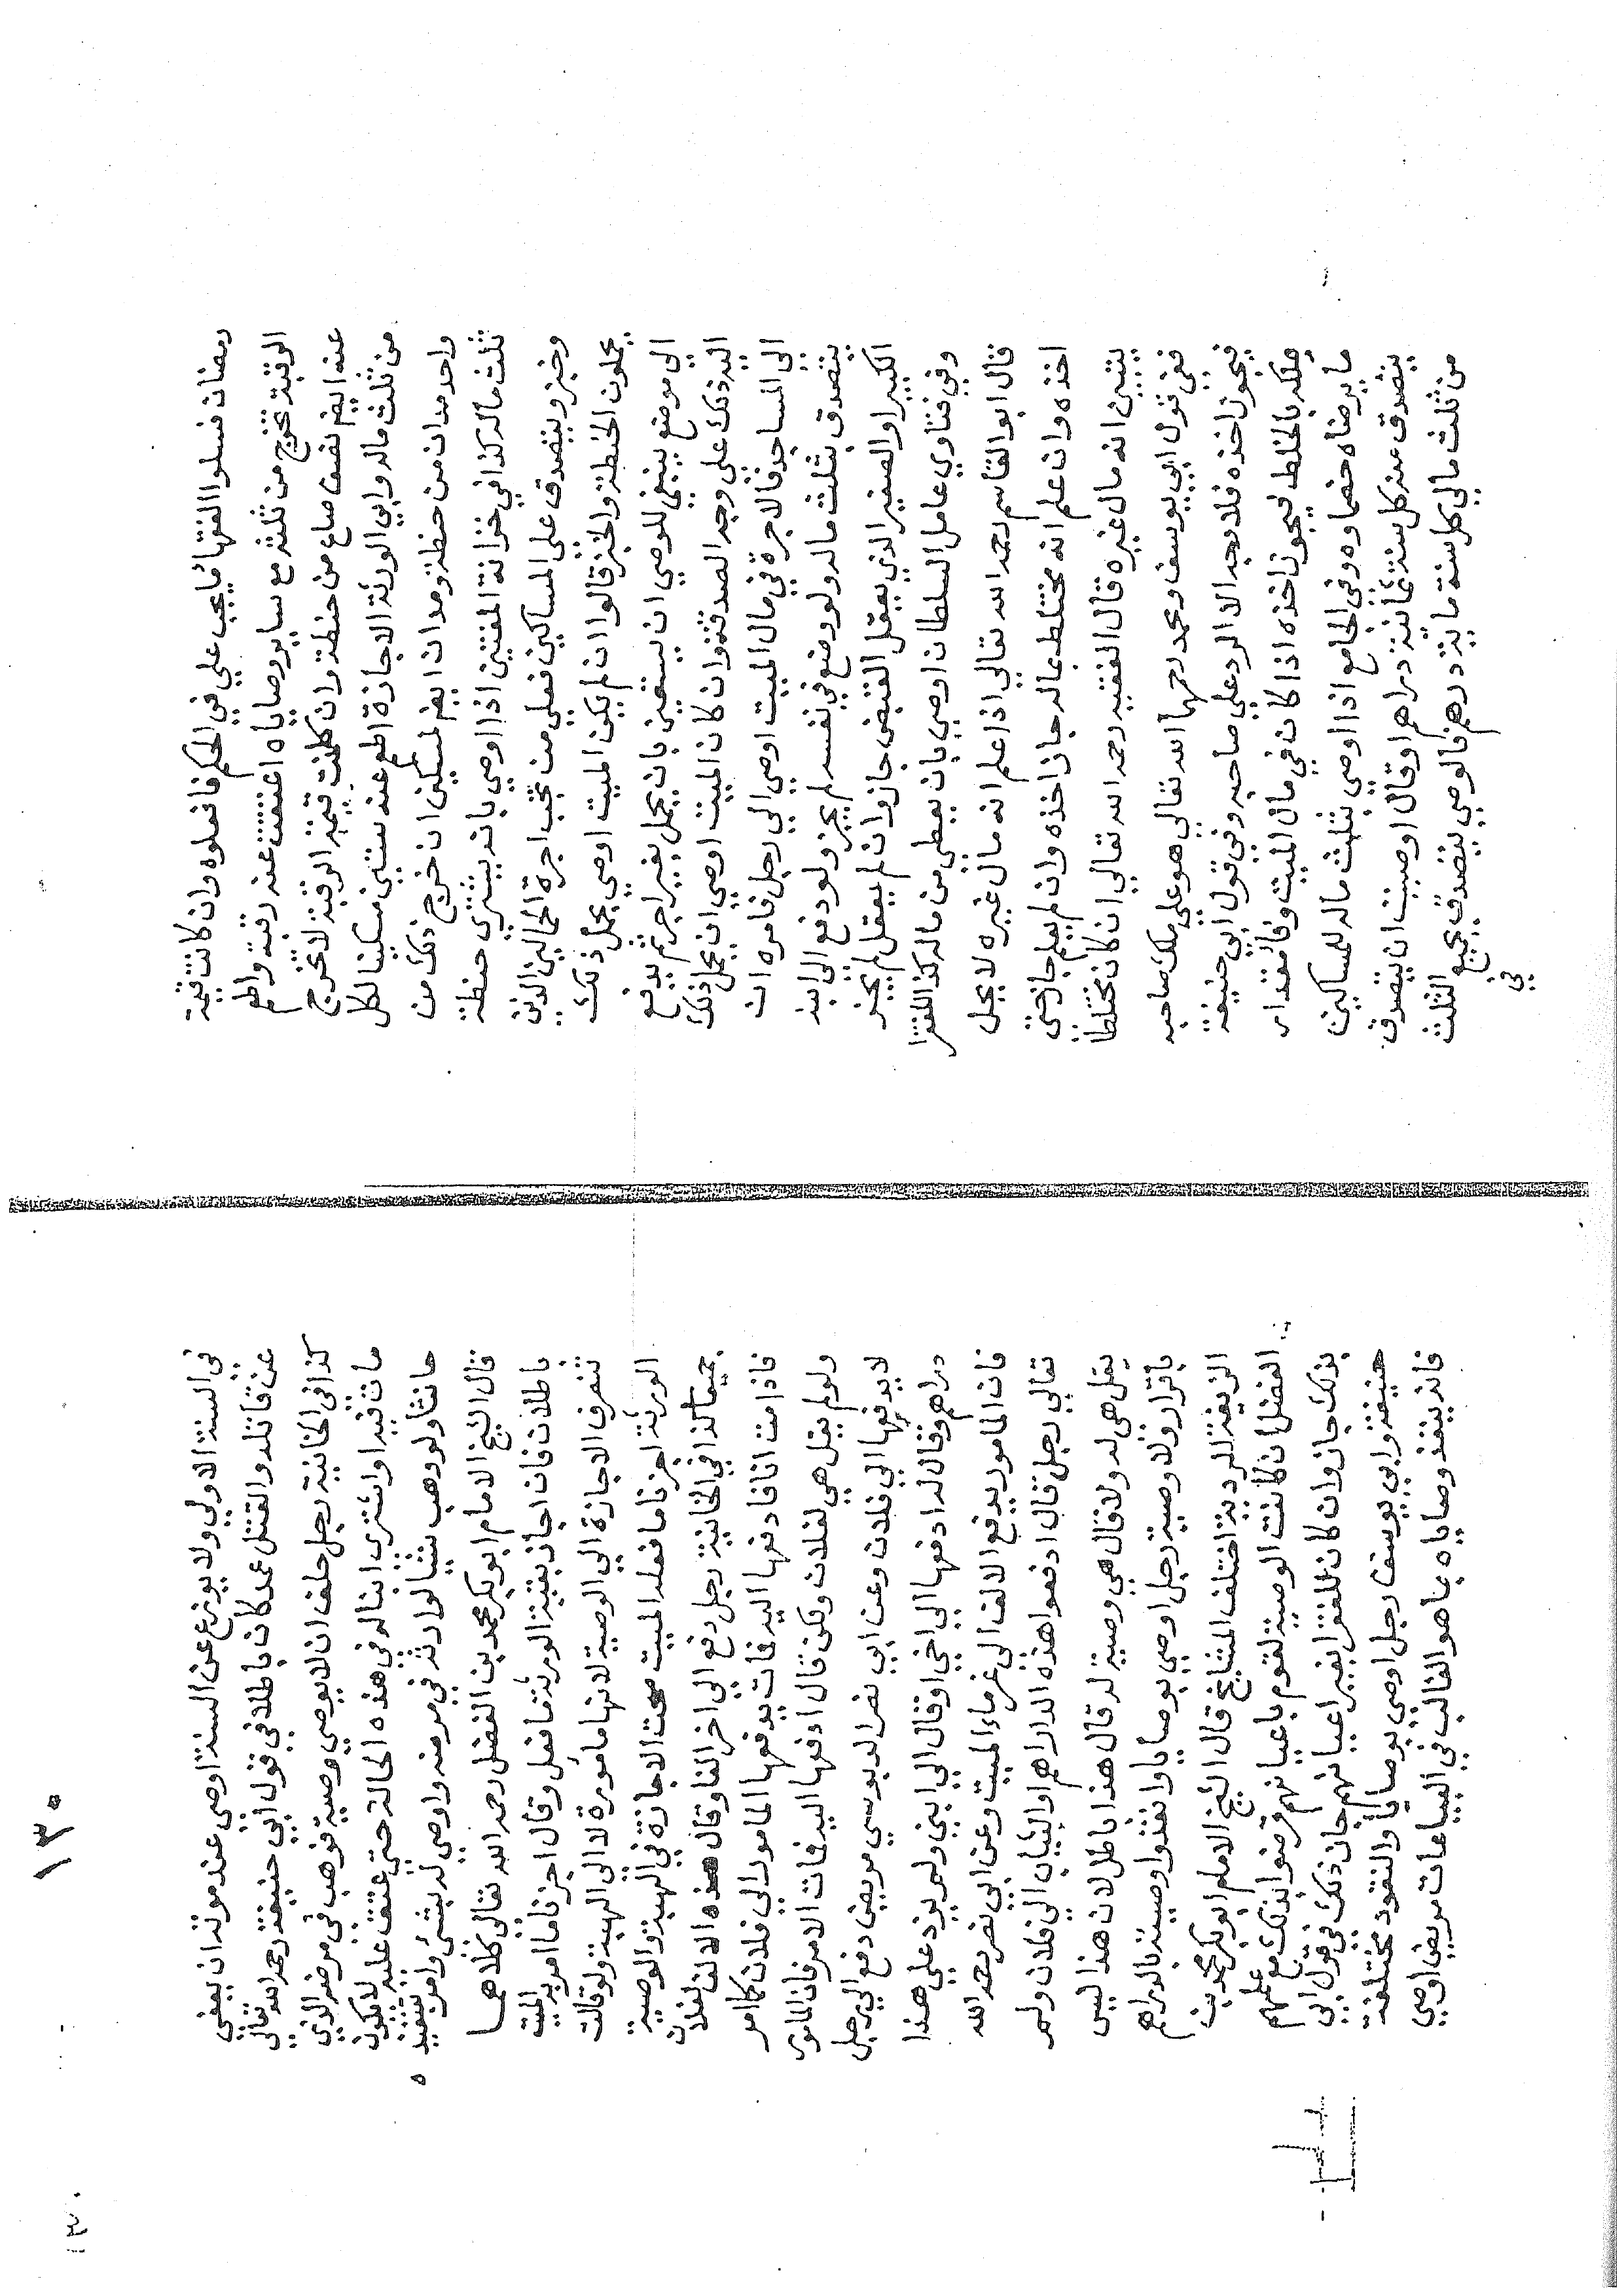 رمضان فسلوا الفقها ما يجب علي في الحكم فافعلوه وان كانت قيمة
الرقبة تخرج من ثلثه مع ساير وصاياه اعتقت عنه رقبة واطعم
عنه ايضم نصف صاع من حنطة وان كانت قيمة الرقبة لا تخرج
من ثلث ماله وابي الورثة الاجازة اطعم عنه ستين مسكينا لكل
واحد مدان من حنطة ومدان ايضم لمسكين ان خرج ذلك من
ثلث ماله كذا في خزانة المفتين اذا اوصي بانه يشتري حنطة
وخبز ويتصدق على المساكين فعلي من تجب اجرة الحمالين الذين
يحملون الحنطة والخبز قالوا ان لم يكن الميت اوصي بحمل ذلك
الي موضع ينبغي للوصي ان يستعين بان يحمل بغير اجر ثم يدفع
اليه ذلك على وجه الصدقة وان كان الميت اوصي ان يحمل ذلك
الي المساجد فالاجرة في مال الميت اوصي الي رجل فامره ان
يتصدق بثلث ماله ولو وضع في نفسه لم يجز ولو دفع الى ابنه
الكبير او الصغير الذي يعقل القبض جاز وان لم يعقل لم يجز
وفي فتاوي عامل السلطان اوصي بان يعطي من ماله كذا للفقرا
قال ابو القاسم رحمه الله تعالي اذا علم انه مال غيره لا يحل
اخذه وان علم انه مختلط بماله جاز اخذه وان لم يعلم جاز حتى
يتبين انه مال غيره قال الفقيه رحمه الله تعالي ان كان مختلطا
ففي قول ابي يوسف ومحمد رحمهما الله تعالي هو علي ملك صاحبه
فيجوز اخذه فلا يجد الا الرد علي صاحبه وفي قول ابي حنيفة
ملكه بالخلط فيجوز اخذه اذا كان في مال الميت وفا لمقدار
ما يرضاه خصماوه وفي الجامع اذا اوصي بثلث ماله للمساكين
يتصدق عنه كل سنة بمائة دراهم او قال اوصيت ان يتصدق
من ثلث مالي كل سنة ماية درهم فالوصي يتصدق بجميع الثلث
في
في السنة الاولي ولا يوزع عن السنة اوصي عند موته ان يعفي
عن قاتله والقتل عمد كان باطلا في قول ابي حنيفة رحمه الله تعالي
كذا في الخانية رجل حلف ان لا يوصي وصية فوهب في مرضه الذي
مات فيه او اشترى ابنا له في هذه الحالة حتي عتق عليه لا يكون
حانثا ولو وهب شيئا لوارثه في مرضه واوصي له بشي وامر بتنفيذه
قال الشيخ الامام ابو بكر محمد بن الفضل رحمه الله تعالي كلاهما
باطلان فان اجاز بقية الورثة ما فعل وقال اجزنا ما امر به الميت
تنصرف الاجازة الي الوصية لانها مامورة لا الى الهبة ولو قالت
الورثة اجزنا ما فعله الميت صحت الاجازة في الهبة والوصية
جميعا كذا في الخانية رجل دفع الي اخر الفا وقال هذه الالف لفلان
فاذا مت انا فادفعها اليه فمات يدفعها المامور الي فلان كما امر
ولو لم يقل هي لفلان ولكن قال ادفعها اليه فمات الامر فان المامور
لا يدفعها الي فلان وعن ابي نصر الدبوسي مريض دفع الي رجل
دراهم وقال له ادفعها الي اخي او قال الي ابني ولم يزد علي هذا
فان المامور يدفع الالف الي غرماء الميت وعن ابي نصر رحمه الله
تعالي رجل قال ادفعوا هذه الدراهم او الثياب الي فلان ولم
يقل هي له ولا قال هي وصية له قال هذا باطل لان هذا ليس
باقرار ولا وصية رجل اوصي بوصايا وانفذوا وصيته بالدراهم
الزيفة الردية اختلف المشايخ قال الشيخ الامام ابو بكر محمد بن
الفضل ان كانت الوصية لقوم باعيانهم فرضوا بذلك مع علمهم
بذلك جاز وان كان للفقرا بغير اعيانهم جاز ذلك في قول ابي
حنيفة وابي يوسف رجل اوصي بوصايا والنقود مختلفة
فانه ينفذ وصاياه بما هو الغالب في البياعات مريض اوصي
١٣٠
١٣٠